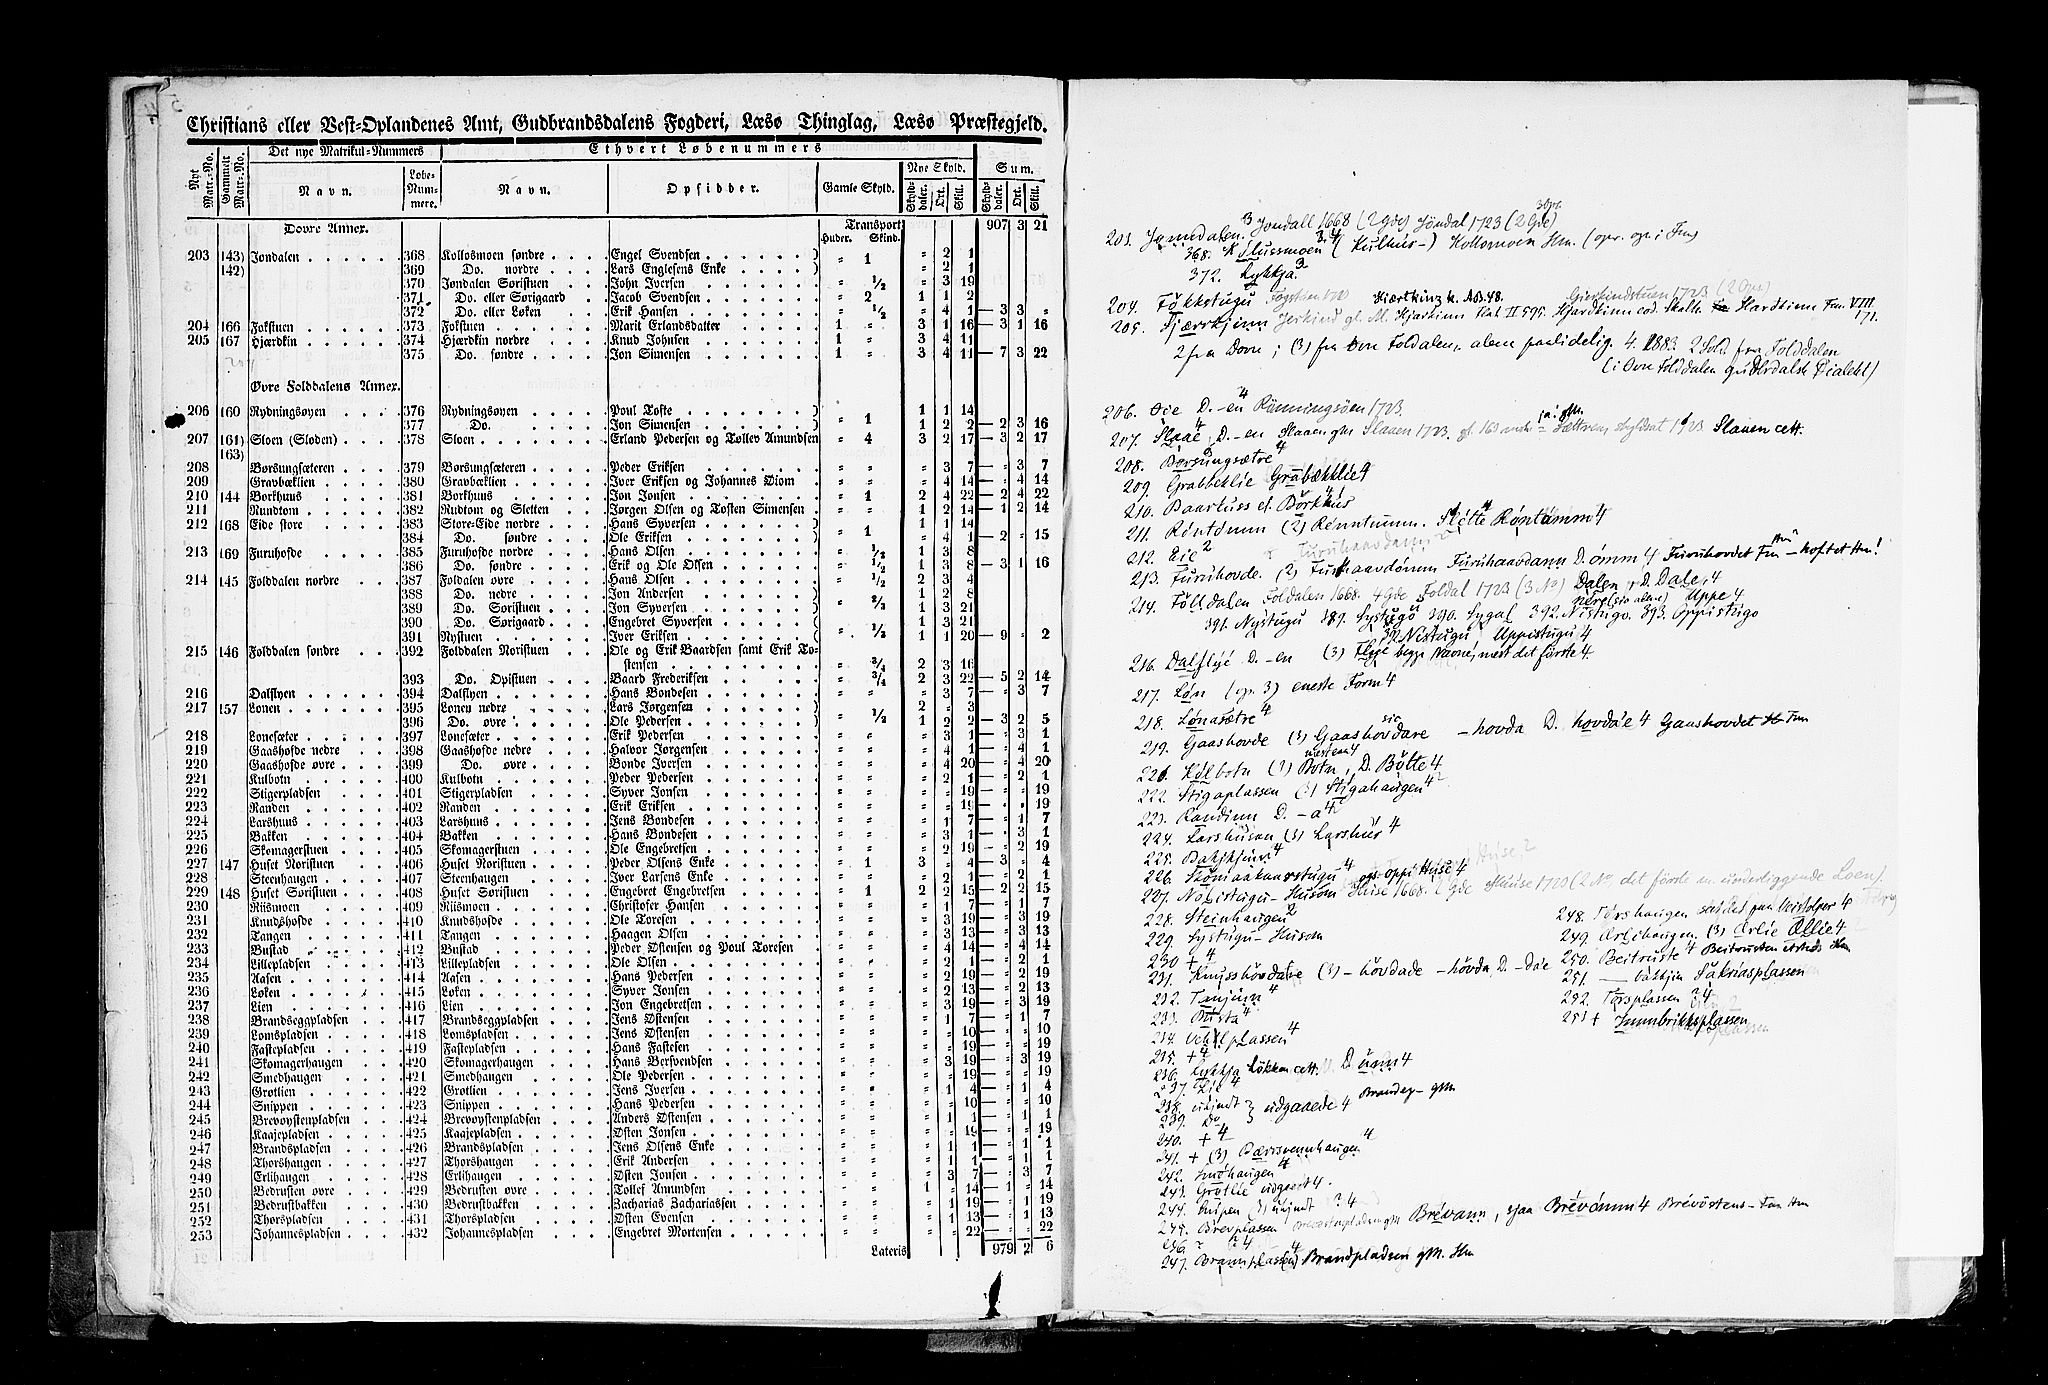 Christians eller Vest-Oplandenes Amt, Gudbrandsdalens Fogderi, Læsø Thinglag, Læsø Præstegjeld.
Nyt Matr.-No. Gammelt Matr.-No. Det nye Matrikul-Nummers Ethvert Løbenummers
Navn. Løbe-Num-mere. Navn. Opsidder. Gamle Skyld. Nye Skyld. Sum.
Skyld-daler. Ort. Skill. Skyld-daler. Ort. Skill.
Dovre Annex. Transport 907 3 21
Huder. Skind.
203 143) Jøndalen 368 Kollosmoen søndre Engel Svendsen ) 1 " 2 1
142) 369 Do. nordre Lars Englesens Enke ) " 2 1
370 Jøndalen Søristuen John Iversen " 1/2 " 3 19
371 Do. eller Sørigaard Jacob Svendsen " 2 1 1 2
372 Do. eller Løken Erik Hansen " 1/2 " 4 1 — 3 3 "
204 166 Fokstuen 373 Fokstuen Marit Erlandsdatter 1 " 3 1 16 — 3 1 16
205 167 Hjærdkin 374 Hjærdkin nordre Knud Johnsen 1 " 3 4 11
375 Do. søndre Jon Simensen 1 " 3 4 11 — 7 3 22
Øvre Folddalens Annex.
206 160 Rydningsøyen 376 Rydningsøyen Poul Tofte ) 1 1 14
377 Do. Jon Simensen ) " 1 1 2 2 — 2 3 16
207 161) Sloen (Sloden) 378 Sloen Erland Pedersen og Tollev Amundsen " 4 3 2 17 — 3 2 17
163)
208 Borsungsæteren 379 Borsungsæteren Peder Eriksen " " " 3 7 — " 3 7
209 Gravbæklien 380 Gravbæklien Iver Eriksen og Johannes Diom " " " 4 14 — " 4 14
210 144 Borkhuus 381 Borkhuus Jon Jonsen " 1 2 4 22 — 2 4 22
211 Rundtom 382 Rudtom og Sletten Jørgen Olsen og Tosten Simensen " " 1 2 14 — 1 2 14
212 168 Eide store 383 Store-Eide nordre Hans Syversen ) 1 1 14
384 Do. søndre Ole Eriksen ) " 1 " 4 1 — 2 " 15
213 169 Furuhofde 385 Furuhofde nordre Hans Olsen " 1/2 1 3 8
386 Do. søndre Erik og Ole Olsen " 1/2 1 3 8 — 3 1 16
214 145 Folddalen nordre 387 Foldalen øvre Hans Olsen " 1/2 2 3 4
388 Do. nedre Jon Andersen ) 1 2 8
389 Do. Søristuen Jon Syversen ) " 2/3 1 3 21
390 Do. Sørigaard Engebret Syversen ) 1 3 21
391 Nystuen Iver Eriksen ) " 1/2 1 1 20 — 9 " 2
215 146 Folddalen søndre 392 Folddalen Noristuen Ole og Erik Baardsen samt Erik To-
stensen " 3/4 2 3 16
393 Do. Opistuen Baard Frederiksen " 3/4 2 3 22 — 5 2 14
216 Dalflyen 394 Dalflyen Hans Bondesen " " " 3 7 — " 3 7
217 157 Lonen 395 Lonen nedre Lars Jørgensen ) 2 " 3
396 Do. øvre Ole Pedersen ) " 1/2 1 2 2 — 3 2 5
218 Lonesæter 397 Lonesæter Erik Pedersen " " " 3 1 — " 3 1
219 Gaashofde nedre 398 Gaashofde nedre Halvor Jørgensen " " " 4 1 — " 4 1
220 Gaashofde øvre 399 Do. øvre Bonde Iversen " " " 4 20 — " 4 20
221 Kulbotn 400 Kulbotn Peder Pedersen " " " 2 1 — " 2 1
222 Stigerpladsen 401 Stigerpladsen Syver Jonsen " " " " 19 — " " 19
223 Randen 402 Randen Erik Eriksen " " " " 19 — " " 19
224 Larshuus 403 Larshuus Jens Bondesen " " " 1 7 — " 1 7
225 Bakken 404 Bakken Hans Bondesen " " " 3 1 — " 3 1
226 Skomagerstuen 405 Skomagerstuen Ole Engebretsen " " " 2 19 — " 2 19
227 147 Huset Noristuen 406 Huset Noristuen Peder Olsens Enke " 1 3 " 4 — 3 " 4
228 Steenhaugen 407 Steenhaugen Iver Larsens Enke " " " 2 1 — " 2 1
229 148 Huset Søristuen 408 Huset Søristuen Engebret Engebretsen " 1 2 2 15 — 2 2 15
230 Riismoen 409 Riismoen Christofer Hansen " " " 1 7 — " 1 7
231 Knudshofde 410 Knudshofde Ole Toresen " " " 3 19 — " 3 19
232 Tangen 411 Tangen Haagen Olsen " " " 3 13 — " 3 13
233 Bustad 412 Bustad Peder Østensen og Poul Toresen " " " 4 14 — " 4 14
234 Lillepladsen 413 Lillepladsen Ole Olsen " " " 2 1 — " 2 1
235 Aasen 414 Aasen Hans Pedersen " " " 2 19 — " 2 19
236 Løken 415 Løken Syver Jonsen " " " 2 13 — " 2 13
237 Lien 416 Lien Jon Engebretsen " " " 3 19 — " 3 19
238 Brandseggpladsen 417 Brandseggpladsen Jens Østensen " " " 1 7 — " 1 7
239 Lomspladsen 418 Lomspladsen Jens Østensen " " " " 10 — " " 10
240 Fastepladsen 419 Fastepladsen Hans Fastesen " " " " 19 — " " 19
241 Skomagerhaugen 420 Skomagerhaugen Hans Bersvendsen " " " 3 19 — " 3 19
242 Smedhaugen 421 Smedhaugen Ole Pedersen " " " " 19 — " " 19
243 Grotlien 422 Grotlien Jens Iversen " " " 1 4 — " 1 4
244 Snippen 423 Snippen Hans Pedersen " " " " 10 — " " 10
245 Brevøystenpladsen 424 Brevøystenpladsen Anders Østensen " " " 1 1 — " 1 1
246 Kaajepladsen 425 Kaajepladsen Østen Jonsen " " " " 19 — " " 19
247 Brandspladsen 426 Brandspladsen Jens Olsens Enke " " " 1 1 — " 1 1
248 Thorshaugen 427 Thorshaugen Erik Andersen " " " 1 1 — " 1 1
249 Erlihaugen 428 Erlihaugen Østen Jonsen " " " 3 7 — " 3 7
250 Bedrusten øvre 429 Bedrusten øvre Tollef Amundsen " " 1 " 14 — 1 " 14
251 Bedrustbakken 430 Bedrustbakken Zacharias Zachariassen " " " 1 19 — " 1 19
252 Thorspladsen 431 Thorspladsen Østen Evensen " " " 1 13 — " 1 13
253 Johannespladsen 432 Johannespladsen Engebret Mortensen " " " " 22 — " " 22
Lateris 979 2 6
203. Jønndalen. Jondall 1668 (2 Gde) Jøndal 1723 (2 Gde)
368. (Kulhus-) Kollomoen Hm. (opr. opr. i Fm)
372. Lykkja
204. Fokkstugu
205. Hjærrkjinn Jerkind gl. M. Hjerkinn
2 fra Dovre; (3) fra Øvre Foldalen, alene paalidelig. 4. 1883. 2 Sold. fra Folddalen
(i Øvre Folddalen gudbrdalsk Dialekt)
206. Øie D. -en Rønningsøen 1723.
207. Slaae, D. -en Slaaen gM Slauen 1723. Slauen cett.
208. Børsungsætre 4
209. Grabbeklie Grabækklie 4
210. Baartuss el. Børkhus
211. Røntomm (2) Rønntumm. Slette Røntåmm 4
212. Eie 2
213. Furuhovde. (2) Furuhaavdomm Furuhaavdann D. ømm 4 Furuhovdet Fm
214. Folldalen Foldalen 1668. 4 Gde Foldal 1723 (3 No) Dalen, D. Dale, 4
391. Nystugu 389. Systugu 390. Sygal 392. Nistugo. 393. Oppistugo
Nistugu Uppistugu 4
216. Dalflyé D. -en (3) Flyé begge Navne, mest det første 4.
217. Løn (opr. 3) eneste Form 4
218. Lønasætre 4
219. Gaashovde (3) Gaashovdare -hovda D. hovda'e 4 Gaashovdet
221. Kølbotn (3) Botn, D. Bøtte 4
222. Stigaplassen (3) Stigahaugen 4
223. Randinn D. -a 4
224. Larshuson (3) Larshus 4
225. Bakkjinn 4
226. Skomakarstugu 4
227. Noristugu-Husom Huse 1668. 2 Gde Huuse 1720 (2 No, det første m. underliggende Loen).
228. Steinhaugen 2
229. Systugu-Husom
230 + 4
231. Knusshovdare (3) -hovdade -hovda, D. -da'e
232. Tanjinn 4
233. Busta 4
234. Vehlplassen 4
235. + 4
236. Lykkja Løkken cett. D. unn 4
237. Lie 4
238. ukjendt } udgaaede 4 Brandeg- gM
239. Do
240. + 4
241. + (3) Bærsvennhaugen 4
242. Smedhaugen 4
243. Grotlie udgaaet 4.
244. Snipen (3) ukjendt ? 4
245. Brevplassen Brevann, sjaa Brevomm 4 Brevøstens- Fm Hm
246. ? ? 4
247. Brannplassen Brandpladsen gM. Hm
248. Torshaugen
249. Ørlihaugen. (3) Ørlie Ølie 4
250. Beitruste 4 Beitrusten
251. — bakkjin Sakriasplassen
252. Torsplassen ? 4
253 + Jonnbrikksplassen